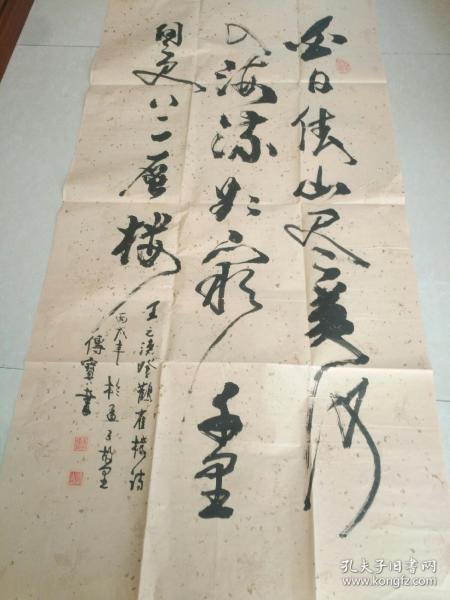 白日依山尽黄河
入海流欲窮千里
目更上一層楼
王之渙登鸛雀楼詩
丙戌年於孟子故里
傳寶書
孔夫子旧书网
www.kongfz.com